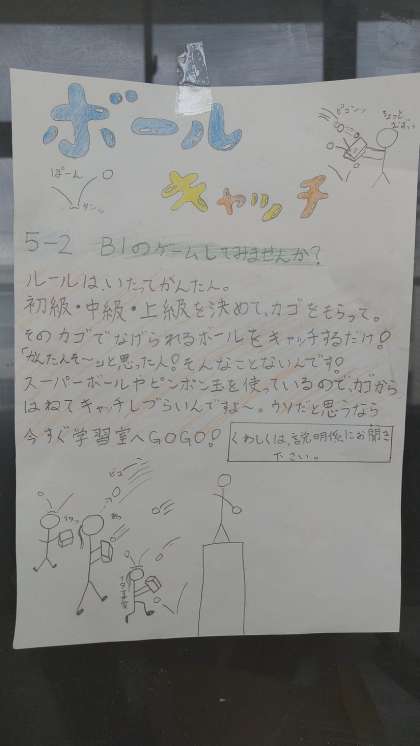 ボール
キャッチ
ぱーん
5-2 B1のゲームしてみませんか?
ルールはいたってかんたん。
初級・中級・上級を決めて、カゴをもらって。
そのカゴでなげられるボールをキャッチするだけ!
「かんたんそ〜」と思った人!そんなことないんです!
スーパーボールやピンポン玉を使っているので、カゴから
はねてキャッチしづらいんですよ〜。ウソだと思うなら
今すぐ学習室へGOGO!
くわしくは、説明係にお聞き
下さい。